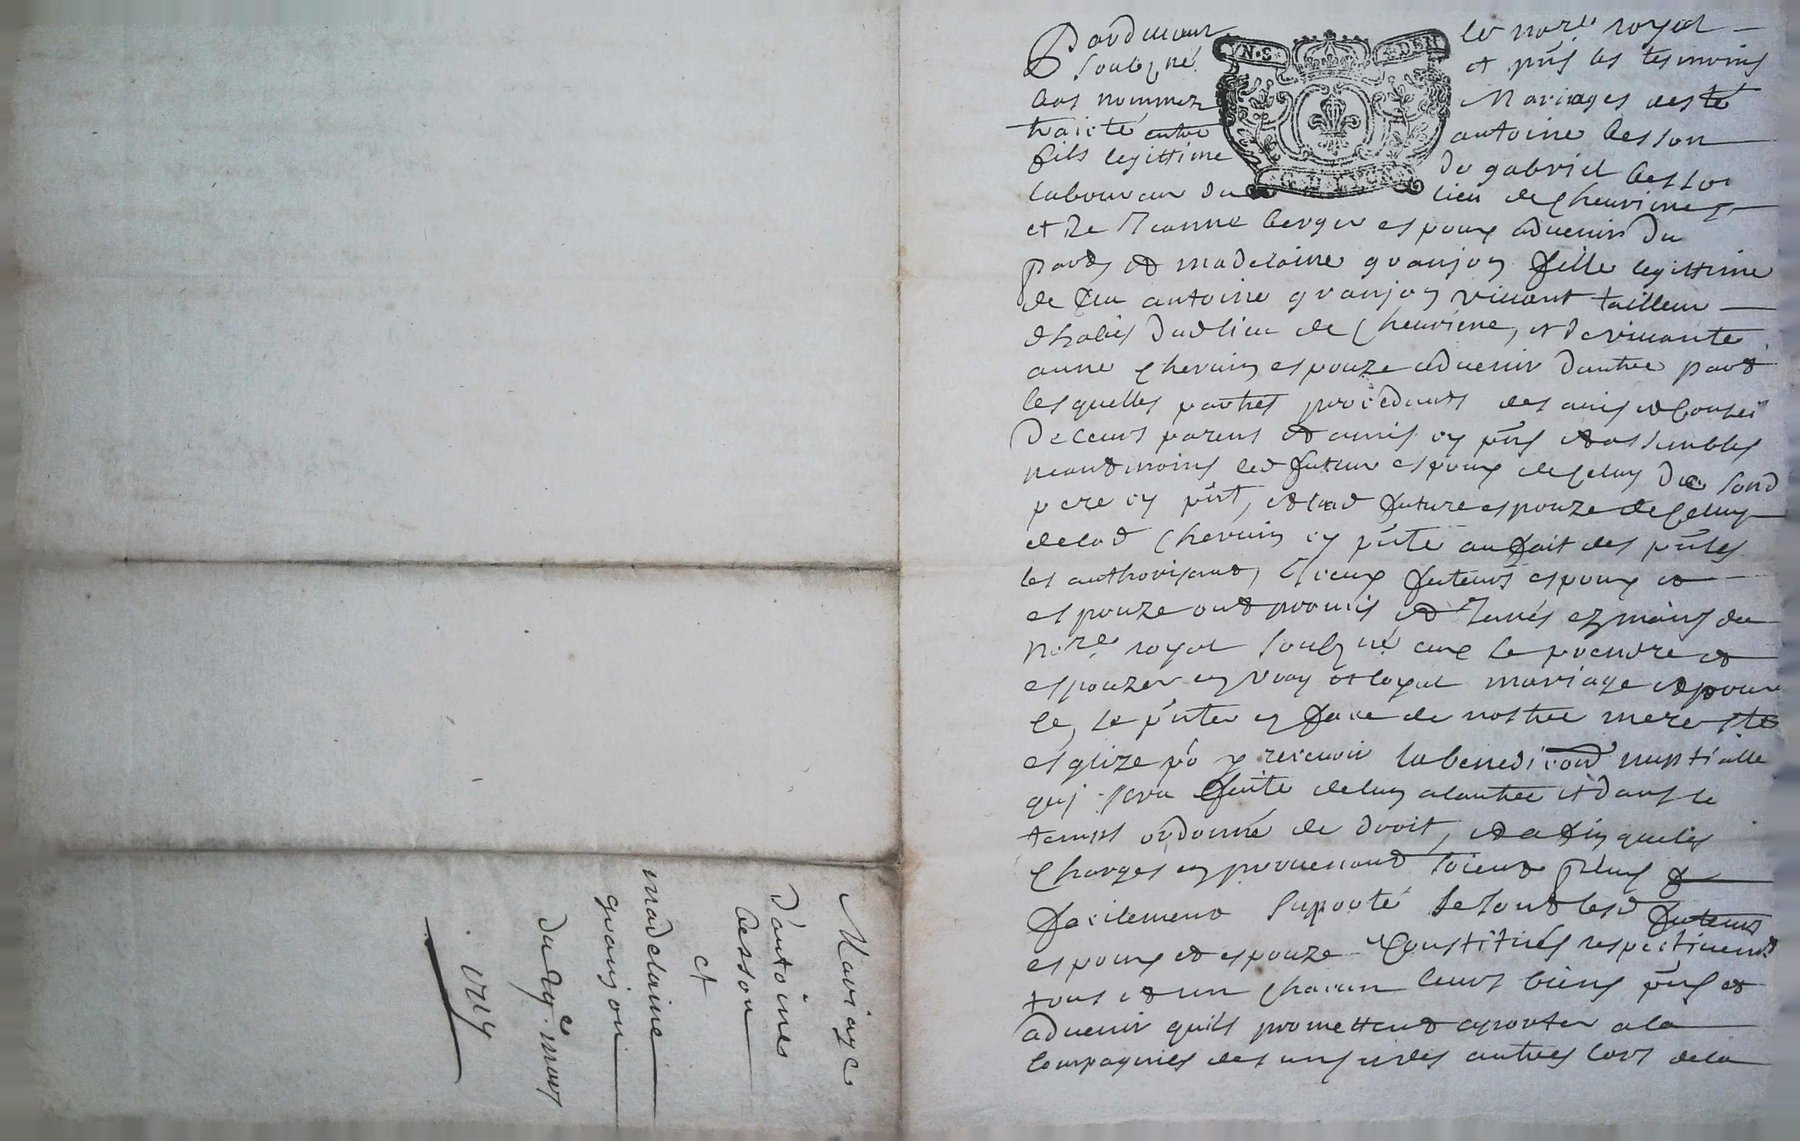 Pardevant le nore royal
soubzné et pnts les tesmoins
bas nommez Mariages esté
traicté entre antoine besson
fils legittime de gabriel besson
laboureur du lieu de Cheurieres
et de Jeanne berger espoux aduenir du
part et madelaine granjon fille legittime
de feu antoine granjon viuant tailleur
d'habis dud lieu de Cheuriere, et de viuante
anne Chervin espouze aduenir d'autre part
lesquelles parties procedants des auis et Conseil
de leurs parens et amis cy pnts et assemblés
neantmoins led futur espoux de Celuy dud sond
pere cy pnt, et lad future espouze de Celuy
de lad Chervin cy pnte au fait des pntes
les authorisant, Iceux futurs espoux et
espouze ont promis et Jurés ez mains du
nore royal soubzné eux se prendre et
espouzer en vray et loyal mariage et pour
ce, se pnter en face de nostre mere ste
esglize po y receuoir la benediction nuptialle
qui sera faite de l'un a l'autre et dans le
temps ordonné de droit, et afin que les
Charges en prouenant soient plus
facilement suporté se sont lesd futurs
espoux et espouze Constitués respectiuement
tous et un chacun leurs biens pnts et
aduenir qu'ils promettent aporter a la
Compagnies des uns et des autres lors de la
N.S. DEN
G. D. LYON
Mariage
d'antoine
besson
et
madelaine
granjon
du 29e mars
1719